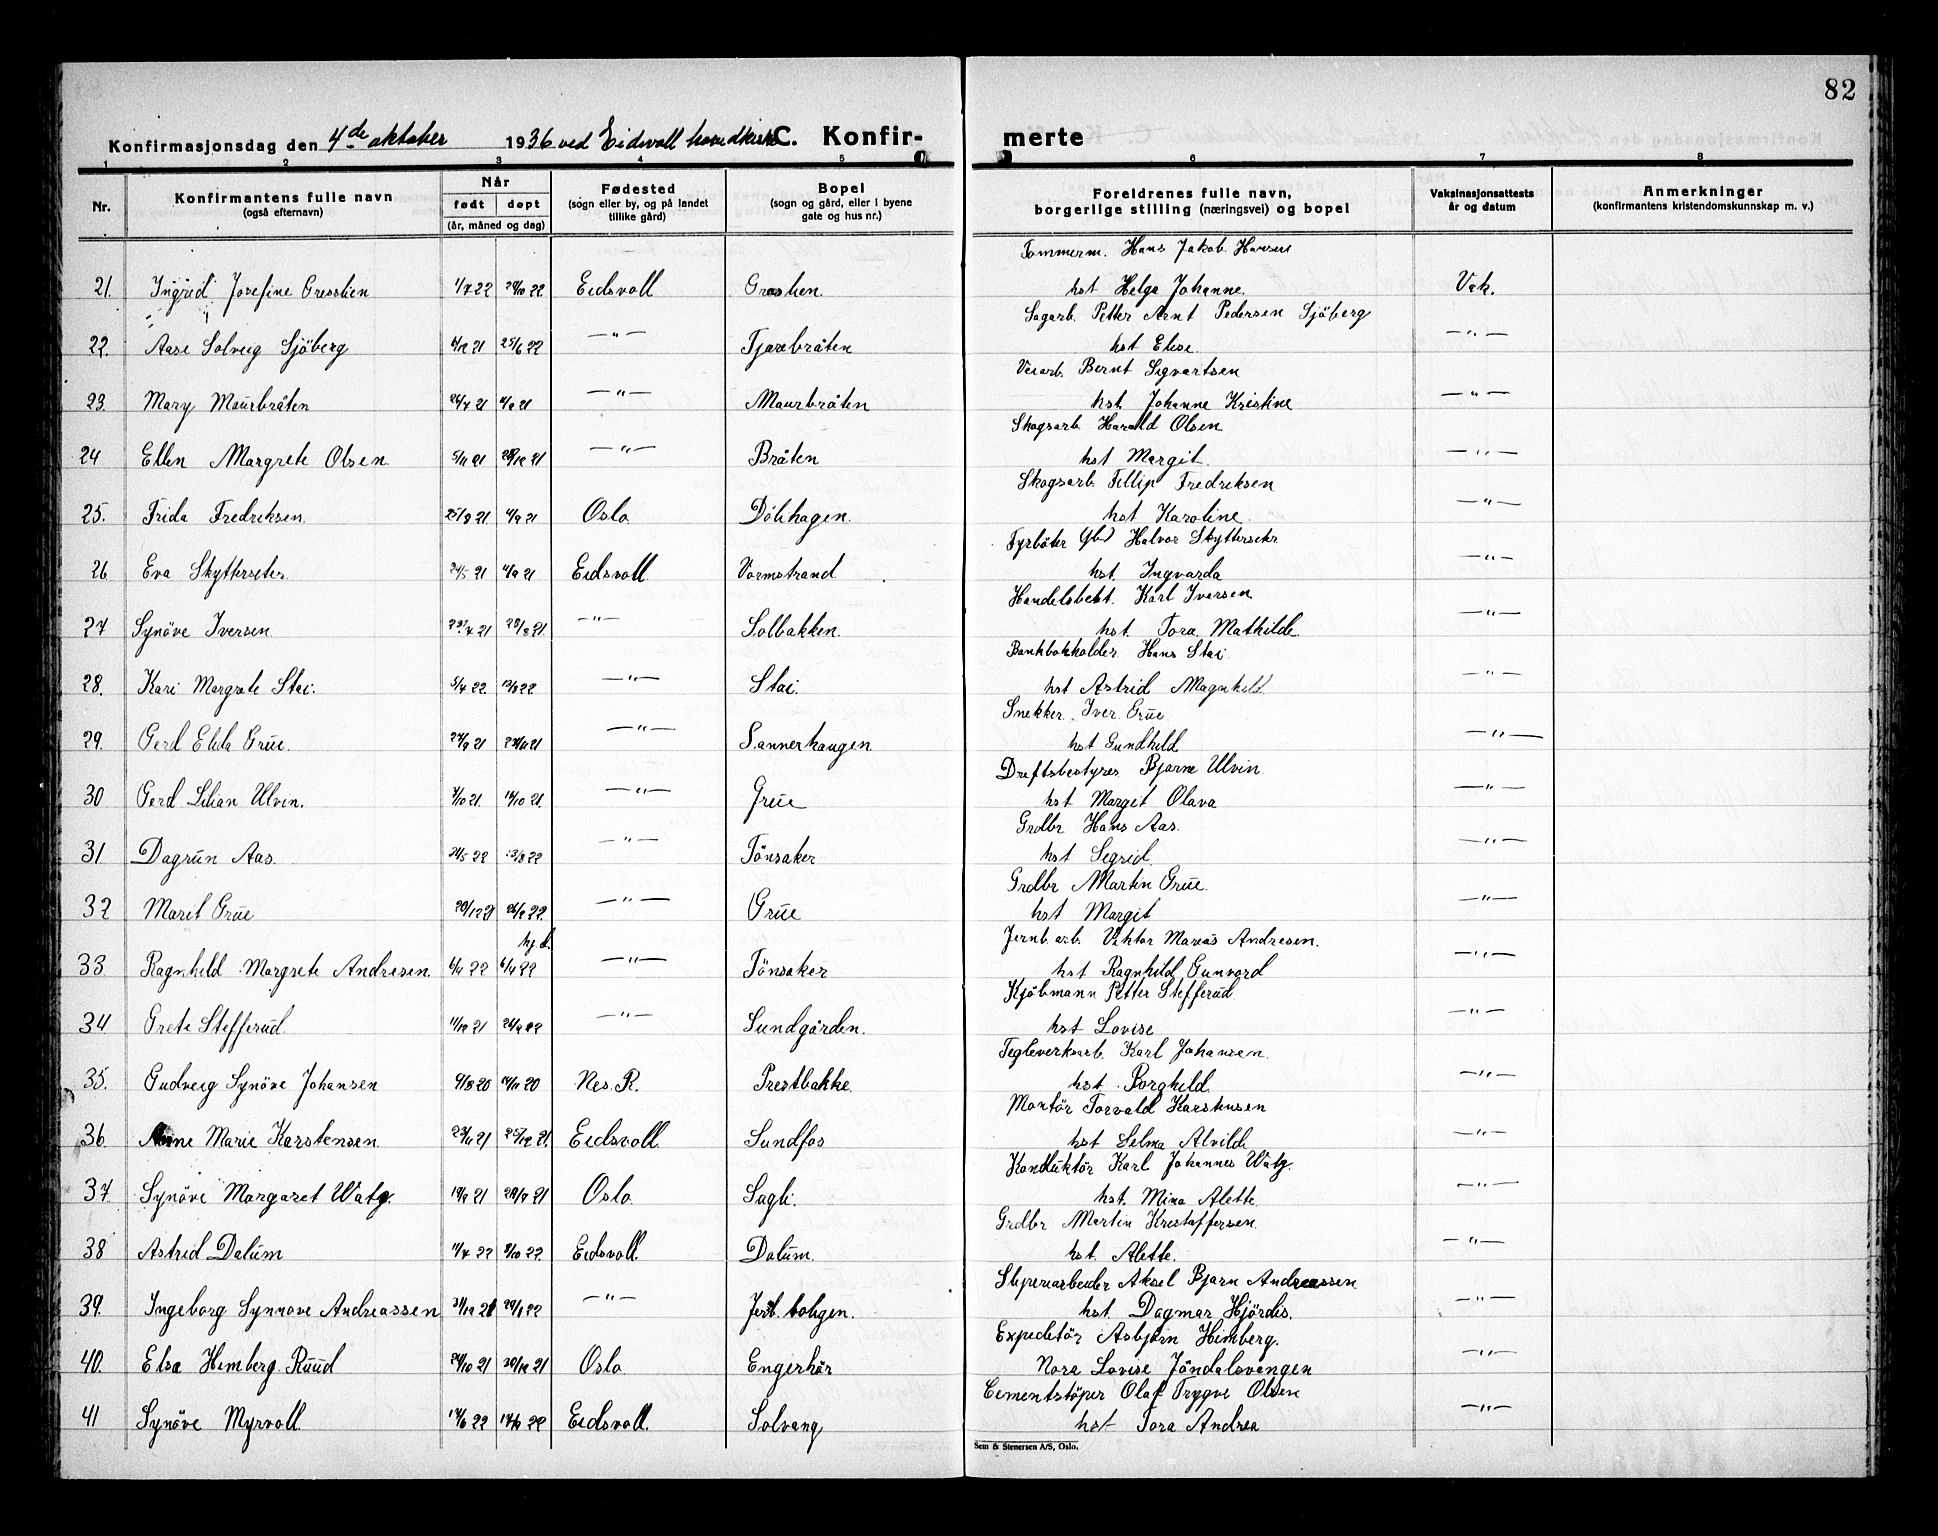 82
Konfirmasjonsdag den 4de oktober 1936 ved Eidsvoll hovedkirke C. Konfir- merte
1 2 3 4 5 6 7 8
Nr. Konfirmantens fulle navn (også efternavn) Når født døpt (år, måned og dag) Fødested (sogn eller by, og på landet tillike gård) Bopel (sogn og gård, eller i byene gate og hus nr.) Foreldrenes fulle navn, borgerlige stilling (næringsvei) og bopel Vaksinasjonsattests år og datum Anmerkninger (konfirmantens kristendomskunnskap m. v.)
Tommerm. Hans Jakob Hansen
21. Ingrid Josefine Presslien 1/7 22 29/10 22 Eidsvoll hst Helga Johanne. Vak.
Sagarb. Petter Arnt Pedersen Sjöberg
22. Aase Solveig Sjöberg 6/12 21 25/6 22 —"— Tjærebråten hst Elise. —"—
Veiarb. Bernt Sigvartsen
23. Mary Maurbråten 24/7 21 4/9 21 —"— Maurbråten hst. Johanne Kristine —"—
Skogsarb. Harald Olsen
24 Ellen Margrete Olsen 5/11 21 28/12 21 —"— Bråten hst Margit. —"—
Skogsarb. Fillip Fredriksen
25. Frida Fredriksen 25/8 21 4/9 21 Oslo Dölihagen. hst Karoline. —"—
Fyrböter Halvor Skytterseter
26 Eva Skytterseter 24/5 21 4/9 21 Eidsvoll Vormstrand hst. Ingvarda —"—
Handelsbest. Karl Iversen
27 Synöve Iversen 28/8 21 —"— Solbakken. hst. Tora Mathilde —"—
Bankbokholder Hans Stai
28. Kari Margrete Stai. 5/4 22 13/8 22 —"— Stai. hst Astrid Magnhild —"—
Snekker Iver Grue
29. Gerd Elida Grue. 24/9 21 —"— Sannerhaugen hst Gundhild —"—
Driftsbestyrer Bjarne Ulvin
30 Gerd Lilian Ulvin. —"— Grue hst Margit Olava —"—
Grdbr Hans Aas.
31 Dagrun Aas. 24/5 22 13/8 22 —"— Tönsaker hst Sigrid. —"—
Grdbr Martin Grue.
32 Marit Grue 20/12 21 —"— Grue hst Margit —"—
hj.d. Jernb. arb. Viktor Marius Andresen.
33 Ragnhild Margrete Andresen 6/4 22 6/4 22 —"— Tönsaker hst Ragnhild Gunvord —"—
Kjöbmann Petter Stefferud.
34 Grete Stefferud. 11/12 21 —"— Sundgården. hst Lovise —"—
Tegleverksarb. Karl Johansen.
35. Gudveig Synöve Johansen 9/8 20 14/11 20 Nes. R. Prestbakke. hst. Borghild. —"—
Montör Torvald Karstensen
36 Anne Marie Karstensen. 23/11 21 25/12 21. Eidsvoll Sundfos hst. Selma Alvilde —"—
Konduktör Karl Johannes Waty.
37 Synöve Margaret Waty. Oslo. Sagli. hst. Mina Alette —"—
Grdbr Martin Kristoffersen.
38 Astrid Dalum 11/7 22 8/10 22 Eidsvoll Dalum. hst. Alette. —"—
Sliperiarbeider Aksel Bjarn Andreassen
39. Ingeborg Synnove Andreassen 31/12 21 29/1 22 —"— Jernb. boligen. hst. Dagmar Hjördis. —"—
Expeditör Asbjörn Himberg.
40. Elsa Himberg Ruud 24/10 21 30/12 21 Oslo Engerkör Nora Lovise Jöndalsvangen —"—
Cementstöper Olaf Trygve Olsen
41 Synöve Myrvoll 17/6 22 Eidsvoll. Solvang hst Tora Andrea —"—
Sem & Stenersen A/S, Oslo.